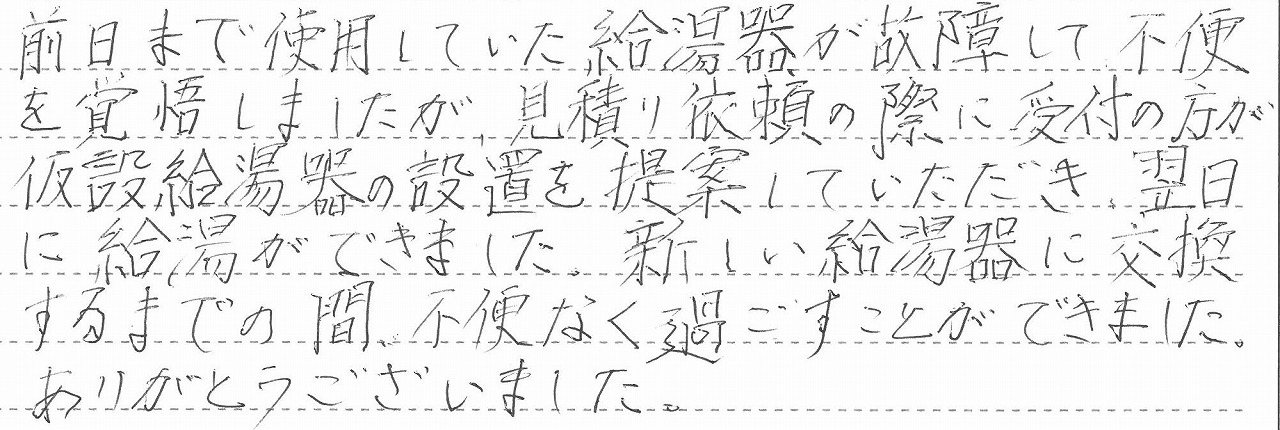 前日まで使用していた給湯器が故障して、不便
を覚悟しましたが、見積り依頼の際に受付の方が
仮設給湯器の設置を提案していただき、翌日
に給湯ができました。新しい給湯器に交換
するまでの間、不便なく過ごすことができました。
ありがとうございました。